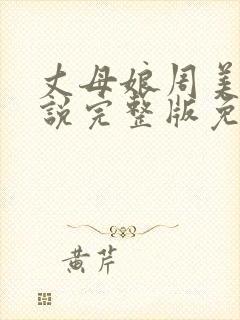 丈母娘周美
說完整版免
黄芹